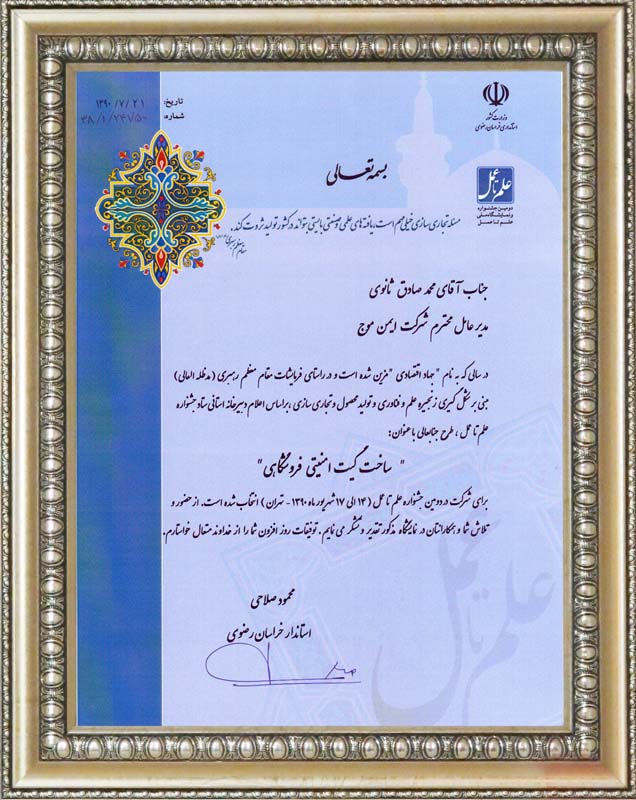 تاریخ: ۱۳۹۰/۷/۲۱
شماره:
وزارت کشور
استانداری خراسان رضوی
بسمه تعالی
علم تا عمل
دومین جشنواره
و نمایشگاه ملی
علم تا عمل
مسئله تجاری سازی خیلی مهم است، یافته های علمی و صنعتی بایستی بتواند در کشور تولید ثروت کند.
جناب آقای محمد صادق ثانوی
مدیر عامل محترم شرکت ایمن موج
در سالی که به نام "جهاد اقتصادی" مزین شده است و در راستای فرمایشات مقام معظم رهبری (مدظله العالی)
مبنی بر شکل گیری زنجیره علم و فناوری و تولید محصول و تجاری سازی ،براساس اعلام دبیرخانه استانی ستاد جشنواره
علم تا عمل ، طرح جنابعالی با عنوان:
" ساخت گیت امنیتی فروشگاهی"
برای شرکت در دومین جشنواره علم تا عمل (۱۴ الی ۱۷ شهریور ماه ۱۳۹۰- تهران) انتخاب شده است. از حضور و
تلاش شما و همکارانتان در نمایشگاه مذکور تقدیر و تشکر می نمایم . توفیقات روز افزون شما را از خداوند متعال خواستارم.
محمود صلاحی
استاندار خراسان رضوی
علم تا عمل